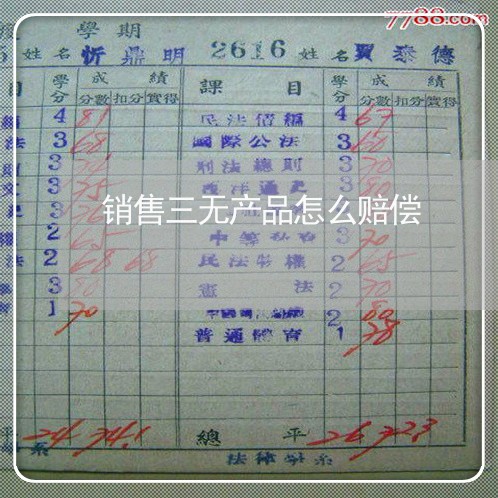 7788.com
學期
姓名 忻鼎明 2616 姓名 賈泰德
目 學分 成績 課目 學分 成績
分數 扣分 實得 分數 扣分 實得
4 81 民法債編 4 67
法 3 68 國際公法 3 60
3 刑法總則 3 70
3 75 西洋通史 3 80
销售三无产品怎么赔偿
2 65 3 70
法 2 68 68 民法物權 2 65
3 80 憲法 2 70
1 70 2 80
普通體育 1 78
平 24 74.1 總平 26 72.3
系 法律學系